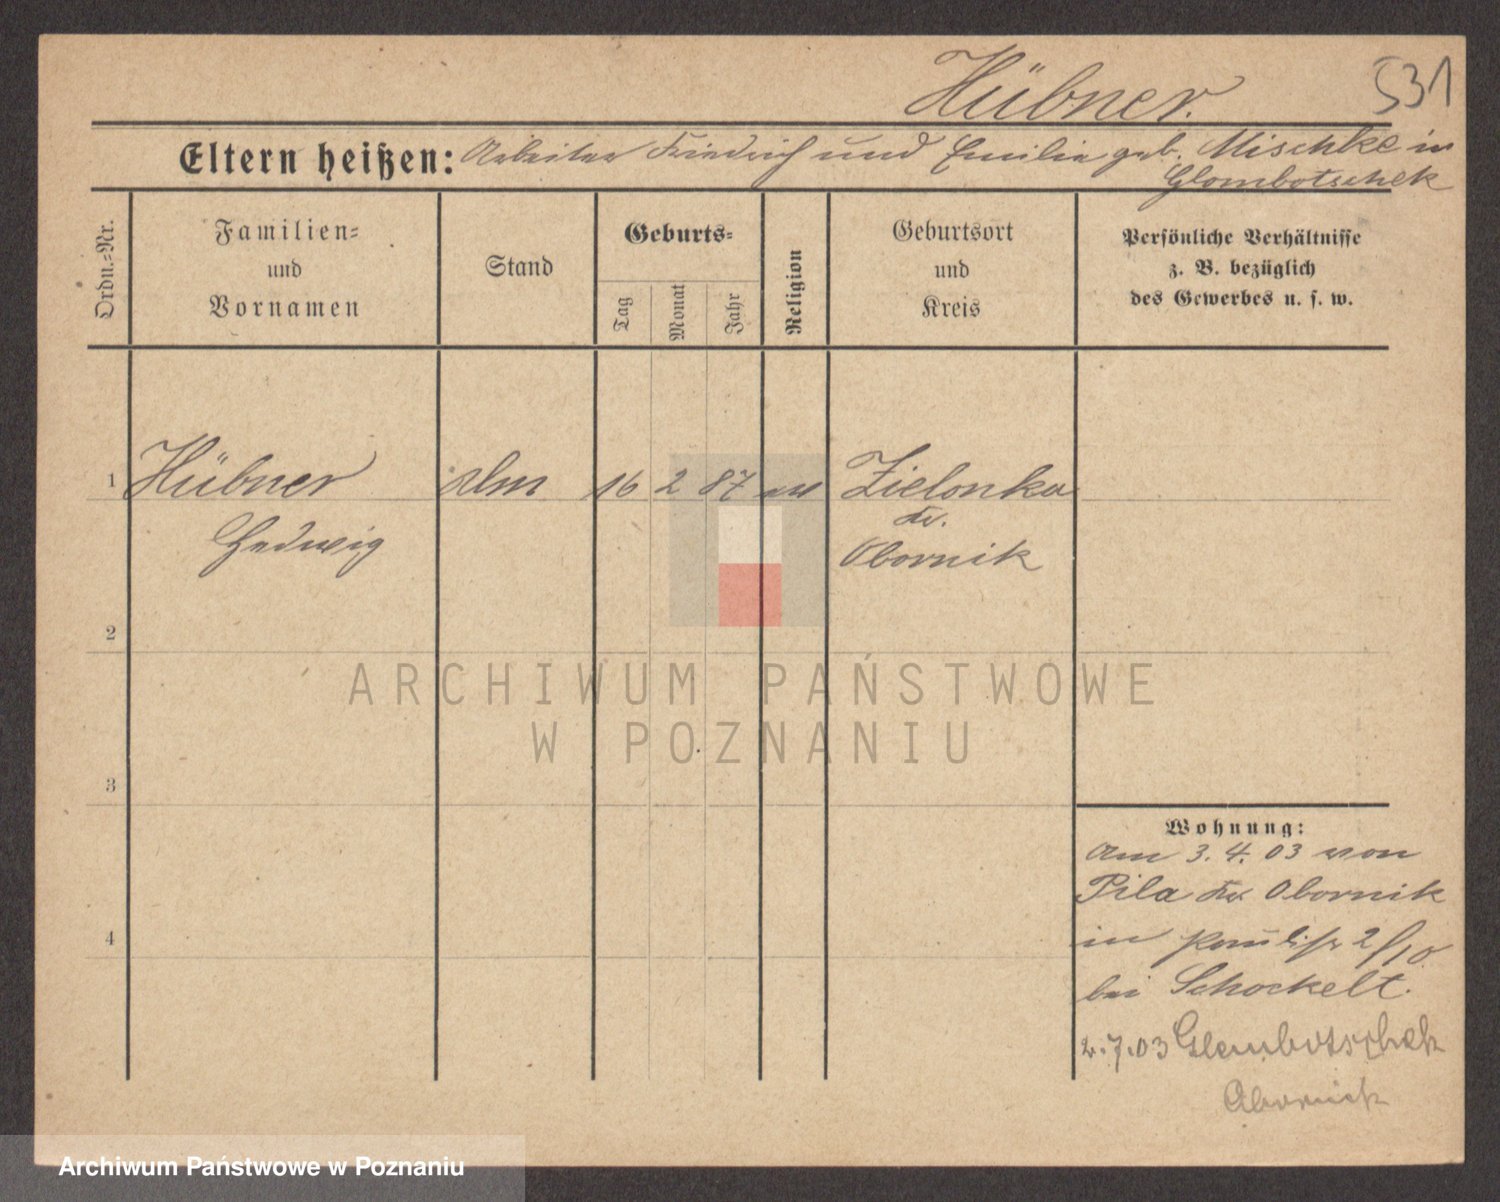 Hübner.
531
Eltern heißen: Arbeiter Friedrich und Emilie geb. Mischke in
Glombotschek
Ordn.-Nr.
Familien-
und
Vornamen
Stand
Geburts-
Tag
Monat
Jahr
Religion
Geburtsort
und
Kreis
Persönliche Verhältnisse
z. B. bezüglich
des Gewerbes u. s. w.
1 Hübner 16 2 87 ev Zielonka
Kr.
Hedwig Obornik
2
3
4
ARCHIWUM PAŃSTWOWE
W POZNANIU
Wohnung:
Am 3. 4. 03 von
Pila Kr. Obornik
in 2/10
bei Schockelt.
2.7.03 Glembotschek
Obornik
Archiwum Państwowe w Poznaniu